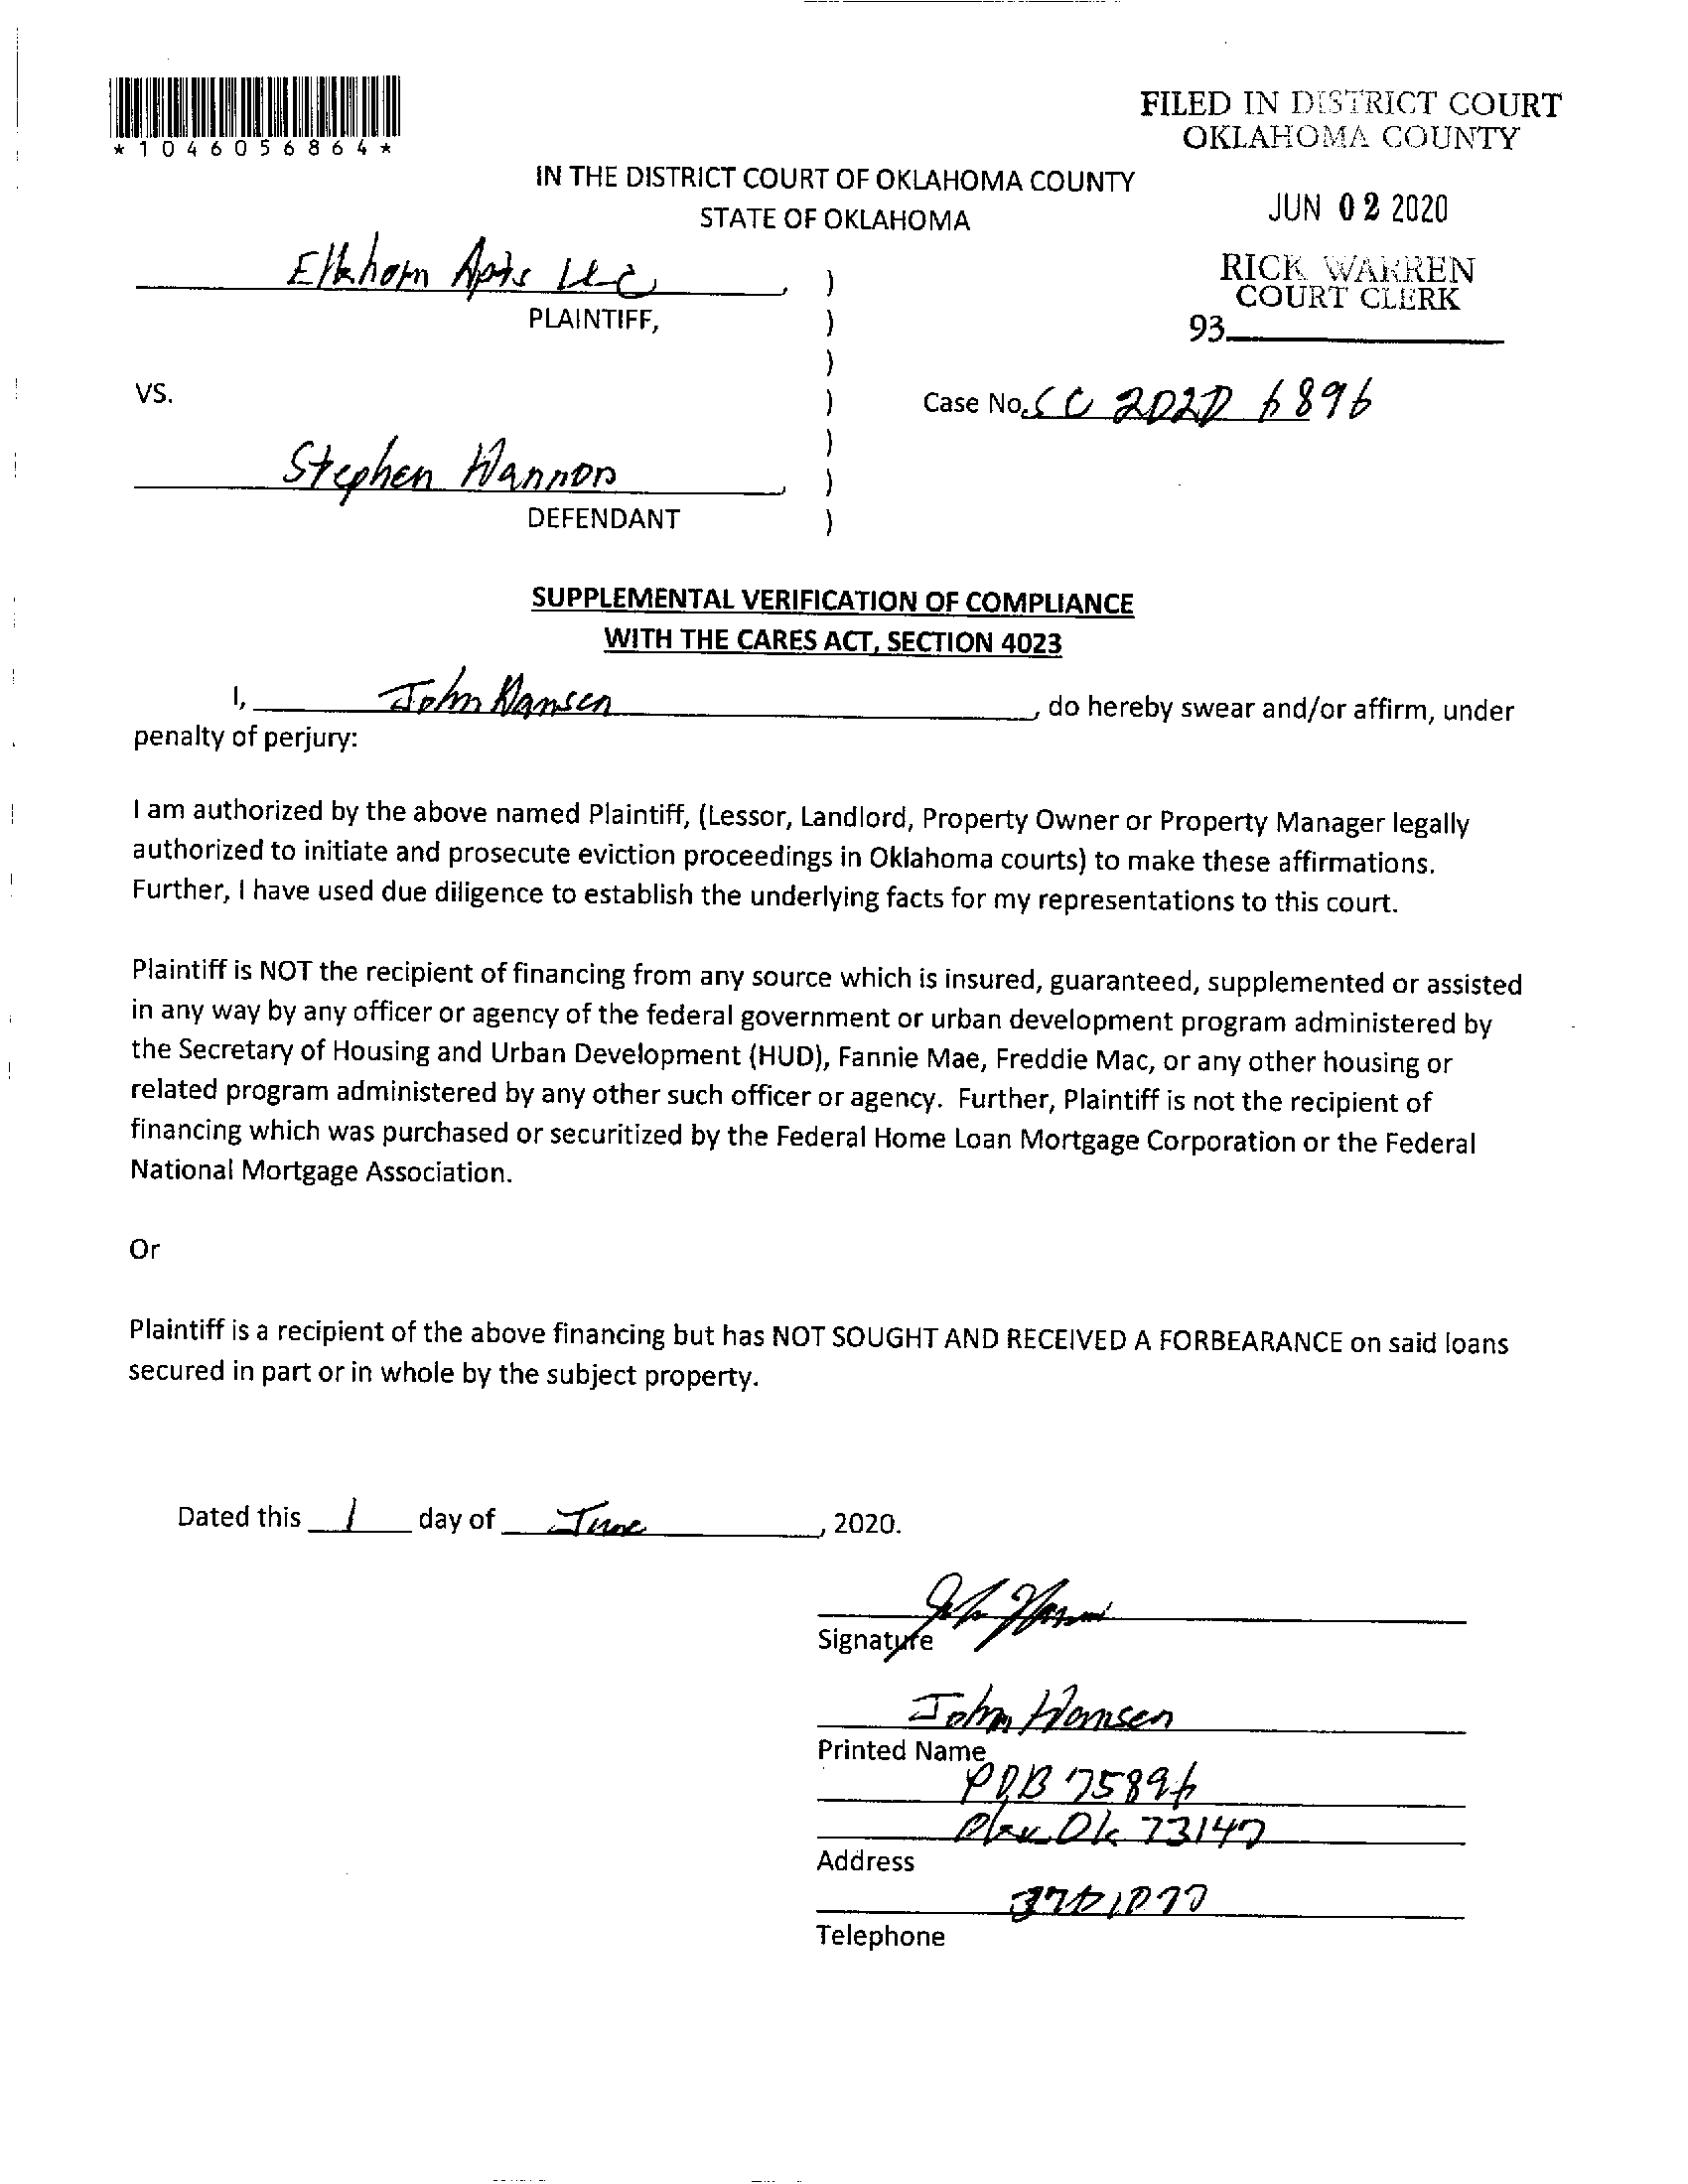 FILED IN DISTRICT COURT
OKLAHOMA COUNTY
*1046056864*
IN THE DISTRICT COURT OF OKLAHOMA COUNTY
STATE OF OKLAHOMA
JUN 02 2020
RICK WARREN
COURT CLERK
93
Elkhorn Apts LLC, )
PLAINTIFF, )
)
VS. )
Case No. SC 2020 6896
)
Stephen Hannon, )
DEFENDANT )
SUPPLEMENTAL VERIFICATION OF COMPLIANCE
WITH THE CARES ACT, SECTION 4023
I, John Hansen, do hereby swear and/or affirm, under
penalty of perjury:
I am authorized by the above named Plaintiff, (Lessor, Landlord, Property Owner or Property Manager legally
authorized to initiate and prosecute eviction proceedings in Oklahoma courts) to make these affirmations.
Further, I have used due diligence to establish the underlying facts for my representations to this court.
Plaintiff is NOT the recipient of financing from any source which is insured, guaranteed, supplemented or assisted
in any way by any officer or agency of the federal government or urban development program administered by
the Secretary of Housing and Urban Development (HUD), Fannie Mae, Freddie Mac, or any other housing or
related program administered by any other such officer or agency. Further, Plaintiff is not the recipient of
financing which was purchased or securitized by the Federal Home Loan Mortgage Corporation or the Federal
National Mortgage Association.
Or
Plaintiff is a recipient of the above financing but has NOT SOUGHT AND RECEIVED A FORBEARANCE on said loans
secured in part or in whole by the subject property.
Dated this 1 day of June, 2020.
Signature
John Hansen
Printed Name
POB 75896
Ok 73147
Address
Telephone